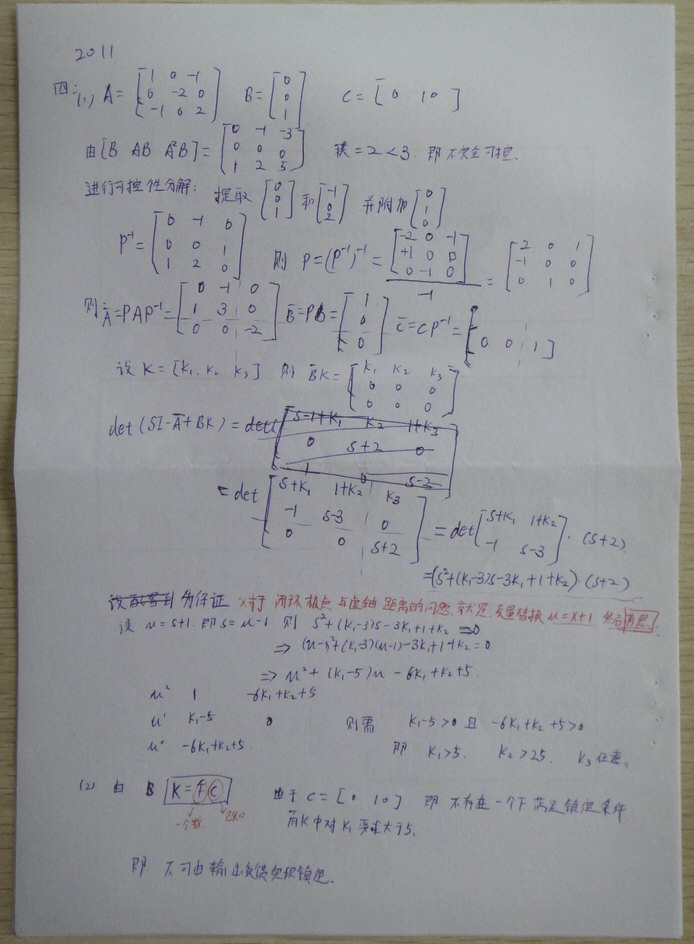 2011
四、(1) A = [1 0 -1; 0 -2 0; -1 0 2] B = [0; 0; 1] C = [0 1 0]
由[B AB A²B] = [0 -1 -3; 0 0 0; 1 2 5] 秩=2<3 即不完全可控.
进行可控性分解: 提取[0; 0; 1]和[-1; 0; 2] 并附加[0; 1; 0]
P⁻¹ = [0 -1 0; 0 0 1; 1 2 0] 则 P=(P⁻¹)⁻¹ = [-2 0 -1; +1 0 0; 0 -1 0] / -1 = [2 0 1; -1 0 0; 0 1 0]
则 Ā=PAP⁻¹ = [0 -1 0; 1 3 0; 0 0 -2] B̄=PB = [1; 0; 0] C̄=CP⁻¹ = [0 0 1]
设 K = [K₁, K₂ K₃] 则 B̄K = [K₁ K₂ K₃; 0 0 0; 0 0 0]
det(SI-Ā+BK) = det [S-1+K₁ K₂ 1+K₃; 0 S+2 0; 1 0 S-2]
= det [S+K₁ 1+K₂ K₃; -1 S-3 0; 0 0 S+2] = det [S+K₁ 1+K₂; -1 S-3] · (S+2)
=(S²+(K₁-3)S-3K₁+1+K₂)(S+2)
为保证 对于闭环极点与虚轴距离的问题 就是变量替换 u=x+1 然后再思
设 u=s+1. 即 s=u-1 则 S²+(K₁-3)S-3K₁+1+K₂=0
⇒ (u-1)²+(K₁-3)(u-1)-3K₁+1+K₂=0
⇒ u²+(K₁-5)u-6K₁+K₂+5.
u² 1 -6K₁+K₂+5
u¹ K₁-5 0 则需 K₁-5>0 且 -6K₁+K₂+5>0
u⁰ -6K₁+K₂+5. 即 K₁>5. K₂>25. K₃任意,
(2) 由 B K=fC 由于 C=[0 1 0] 即 不存在一个f 满足镇定条件
一个数.
而K中对K₁要求大于5,
即 不可由输出反馈实现镇定.